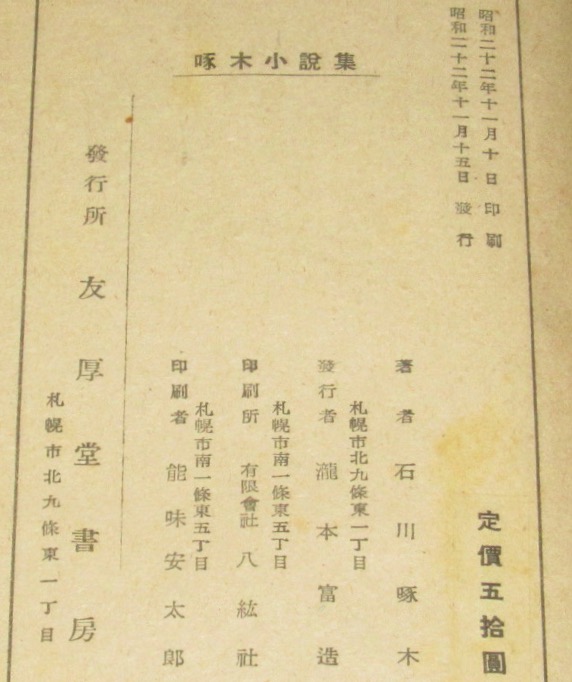 昭和二十二年十一月十日 印刷
昭和二十二年十一月十五日 發行
啄木小說集
定價五拾圓
著者 石川啄木
札幌市北九條東一丁目
發行者 瀧本富造
札幌市南一條東五丁目
印刷所 有限會社 八紘社
札幌市南一條東五丁目
印刷者 能味安太郎
發行所 友厚堂書房
札幌市北九條東一丁目